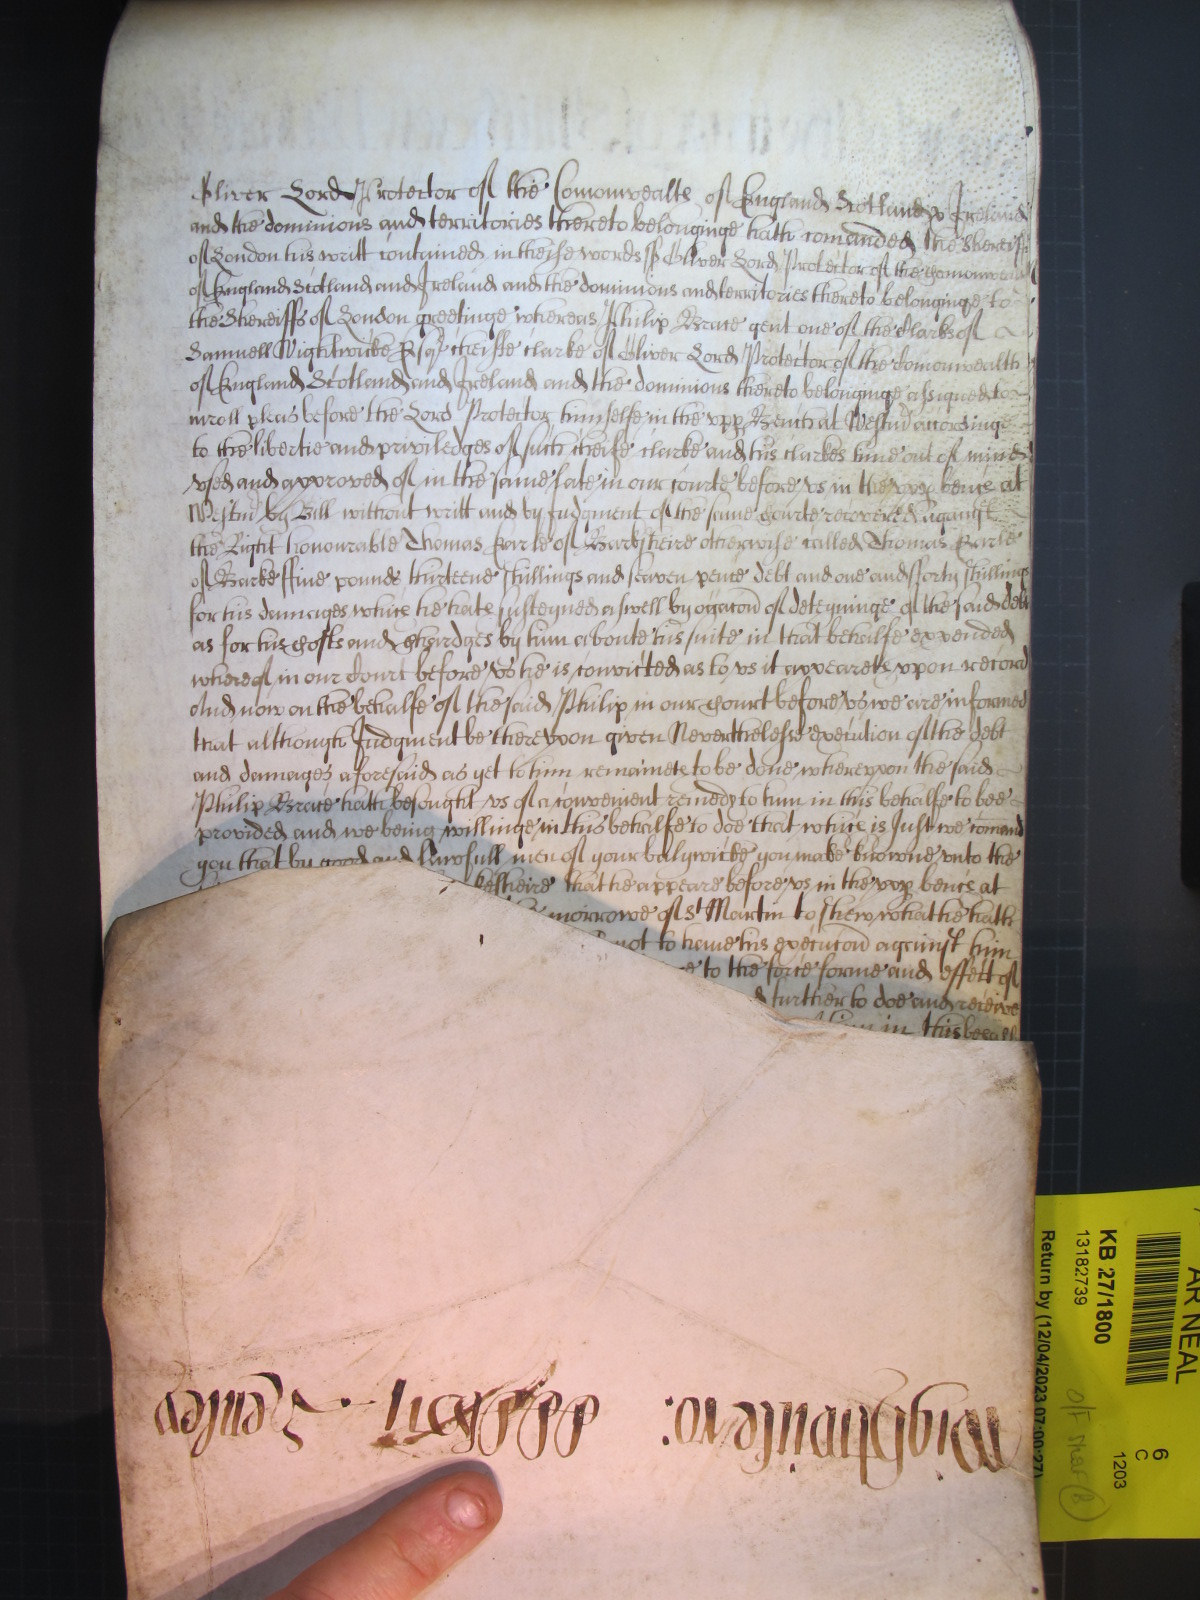 Oliver Lord Protector of the Comonwealth of England Scotland & Ireland
and the dominions and territories thereto belonginge hath comanded the Shereiffs
of London his writt contained in theise words ss Oliver Lord Protector of the Comonwealth
of England Scotland and Ireland and the dominions and territories thereto belonginge to
the Shereiffs of London greetinge whereas Philip Brace gent one of the Clarks of
Samuell Wightwicke Esqr cheiffe clarke of Oliver Lord Protector of the Comonwealth
of England Scotland and Ireland and the dominions thereto belonginge assigned to
inroll pleas before the Lord Protector himselfe in the upp Bench at Westm accordinge
to the libertie and priviledges of such cheife clarke and his clarkes time out of mind
used and approved of in the same late in our courte before us in the upp bench at
Westm by Bill without writt and by Judgment of the same Courte recovered against
the Right honourable Thomas Earle of Barksheire otherwise called Thomas Earle
of Barke ffive pounds thirteene shillings and seaven pence debt and one and fforty shillings
for his damages which he hath susteyned aswell by occacon of deteyninge of the said debt
as for his Costs and Chardges by him aboute his suite in that behalfe expended
whereof in our Court before us he is convicted as to us it appeareth uppon record
And now on the behalfe of the said Philip in our Court before us we are informed
that although Judgment be thereuppon given Neverthelesse execution of the debt
and damages aforesaid as yet to him remaineth to be done whereuppon the said
Philip Brace hath besought us of a convenient remedy to him in this behalfe to bee
provided and we being willinge in this behalfe to doe that which is Just we comand
you that by good and lawfull men of your balywicke you make knowne unto the
ksheire that he appeare before us in the upp bench at
morrowe of St Martin to shew what he hath
not to have his execucon against him
to the force forme and effect of
further to doe and receive
him in this behalf
Wightwicke
KB 27/1800
13182739
Return by (12/04/2023 07:00:27)
AR NEAL
6
C
1203